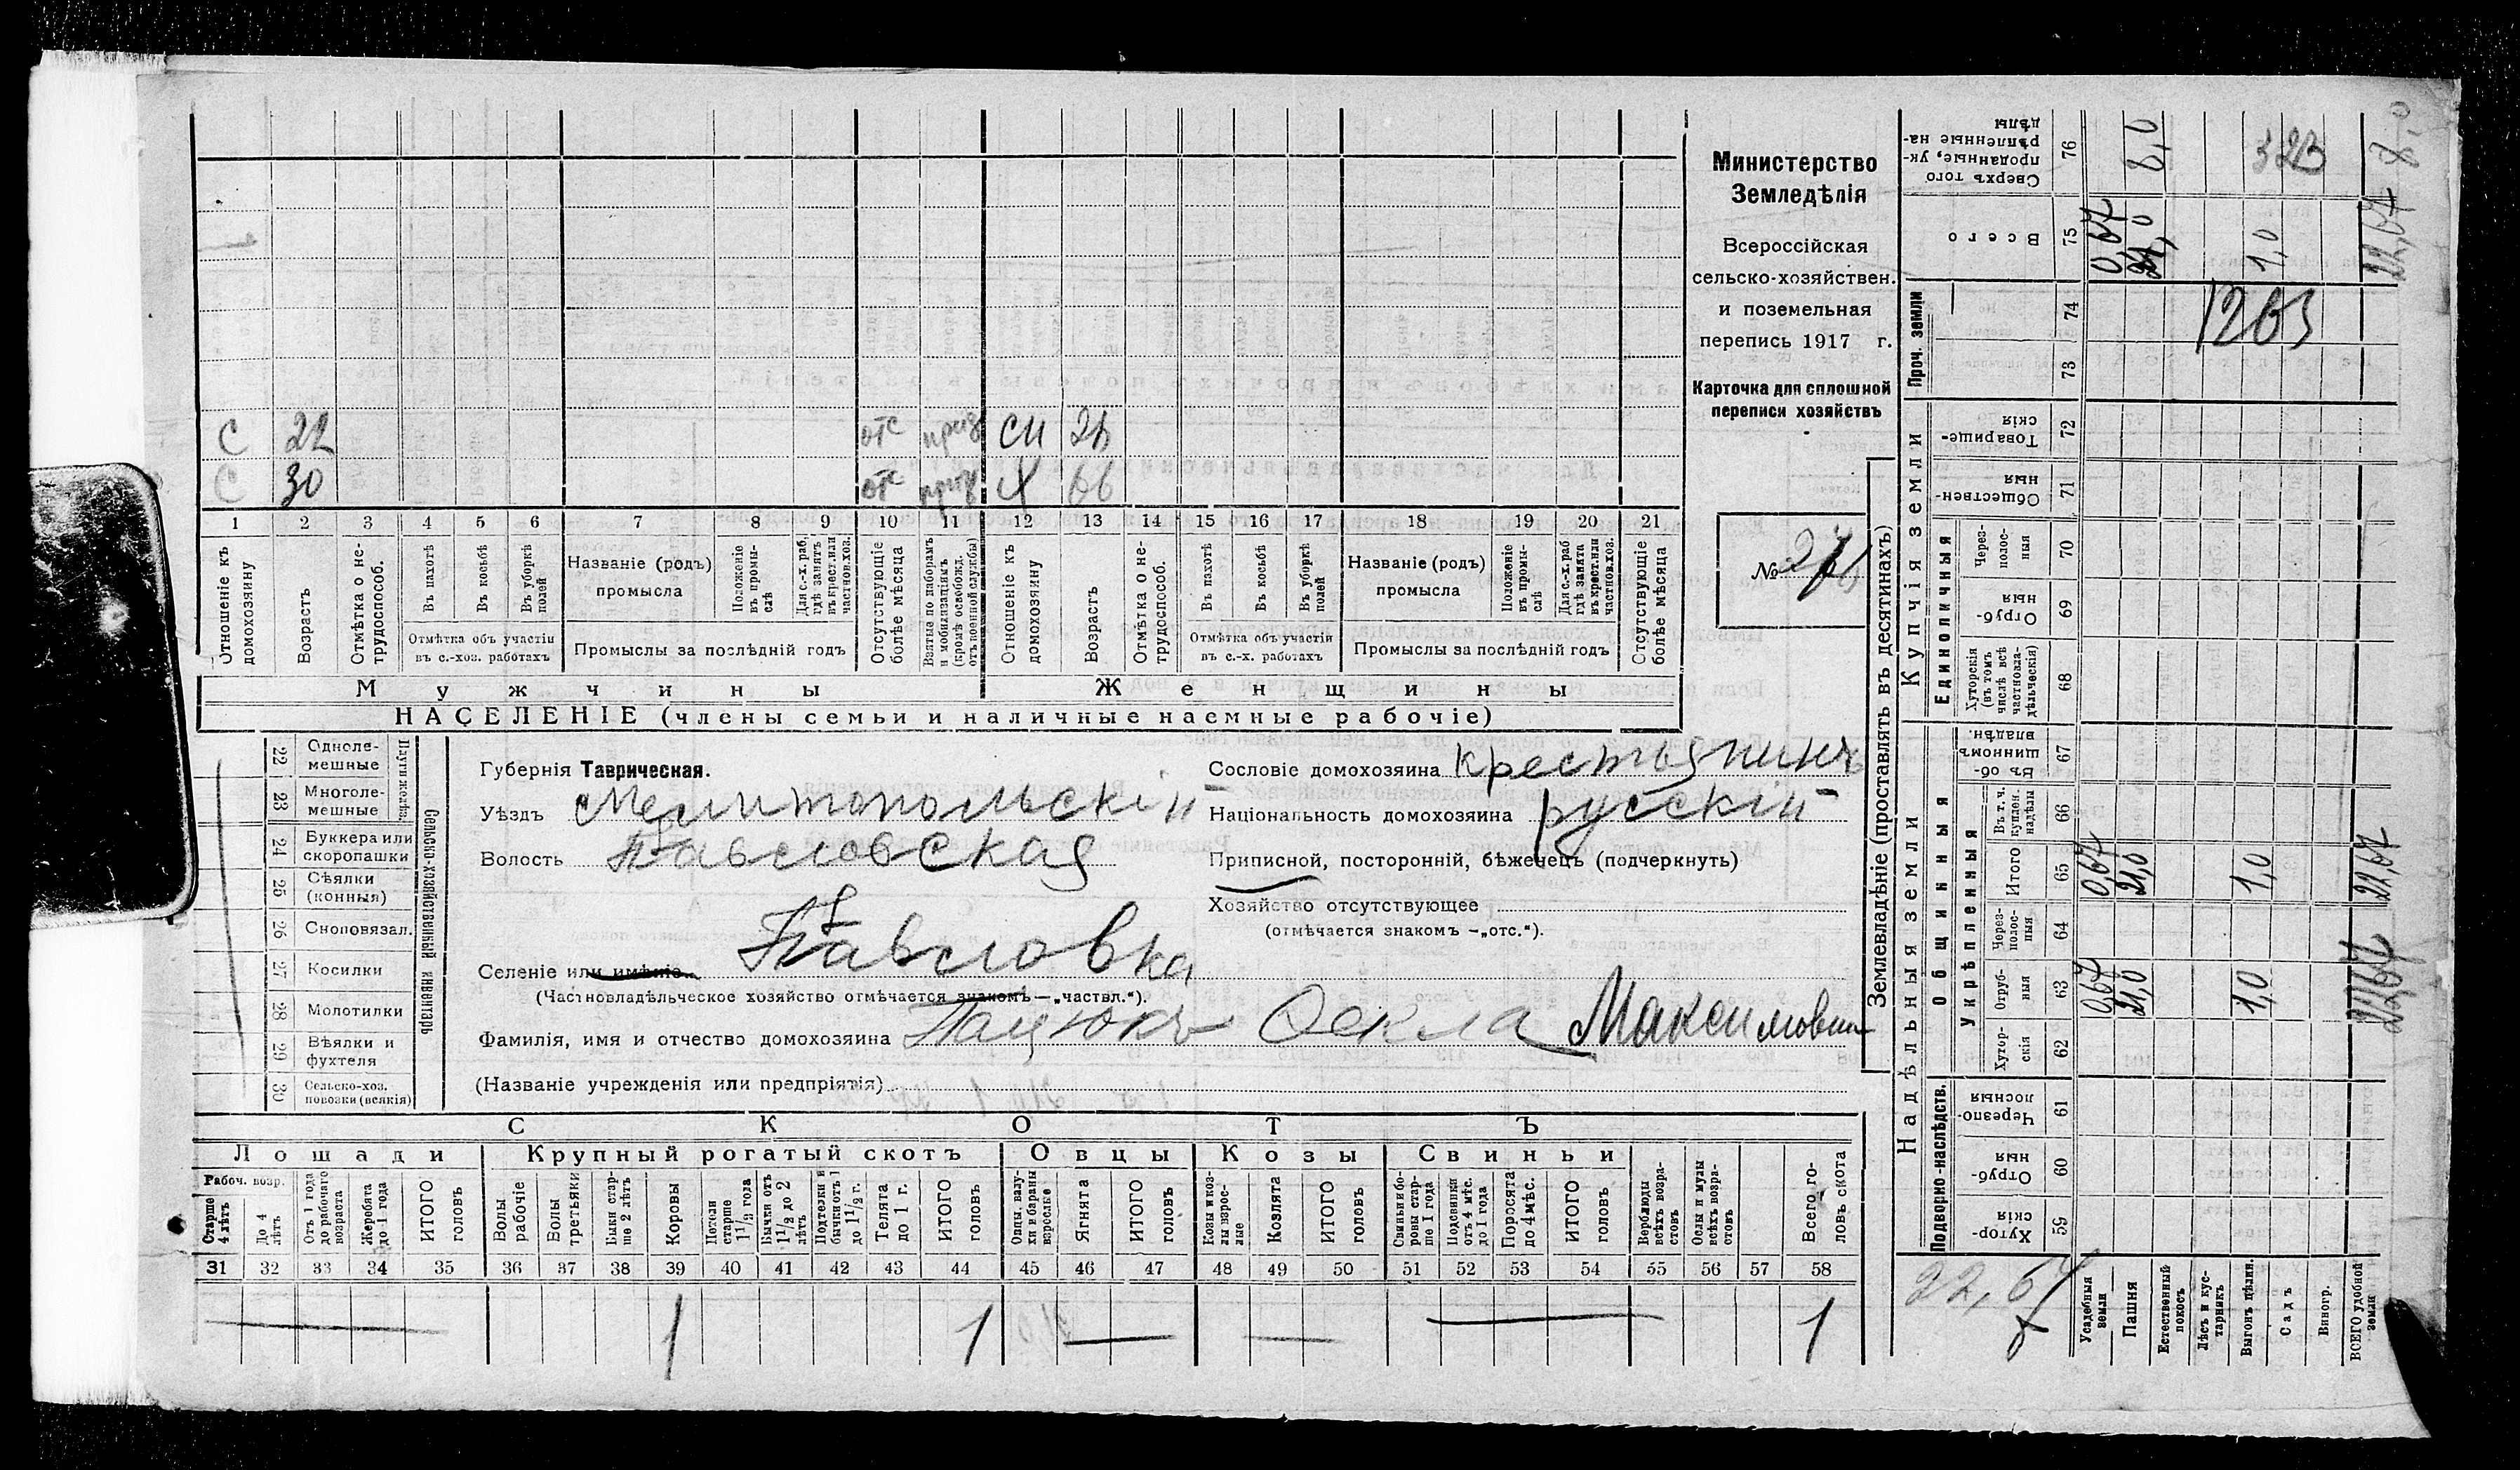 Министерство
Земледѣлія
Всероссійская
сельско-хозяйствен.
и поземельная
перепись 1917 г.
Карточка для сплошной
переписи хозяйствъ
№ 271
С 22 отс приз сн 2
С 30 отс приз Х 66
1 2 3 4 5 6 7 8 9 10 11 12 13 14 15 16 17 18 19 20 21
Отношеніе къ домохозяину
Возрастъ
Отмѣтка о не-трудоспособ.
Въ пахотѣ
Въ косьбѣ
Въ уборкѣ полей
Отмѣтка объ участіи въ с.-хоз. работахъ
Названіе (родъ) промысла
Положеніе въ промы-слѣ
Для с.-х. раб, гдѣ занятъ въ крест. или частнов. хоз.
Промыслы за послѣдній годъ
Отсутствующіе болѣе мѣсяца
Взятые по наборамъ и мобилизаціямъ (кромѣ освобожд. отъ военной службы)
Отношеніе къ домохозяину
Возрастъ
Отмѣтка о не-трудоспособ.
Въ пахотѣ
Въ косьбѣ
Въ уборкѣ полей
Отмѣтка объ участіи въ с.-х. работахъ
Названіе (родъ) промысла
Положеніе въ промы-слѣ
Для с.-х. раб гдѣ занята въ крест. или частнов. хоз.
Промыслы за послѣдній годъ
Отсутствующіе болѣе мѣсяца
Мужчины Женщины
НАСЕЛЕНІЕ (члены семьи и наличные наемные рабочіе)
Сельско-хозяйственный инвентарь
Плуги желѣз.
22 Одноле-мешные
23 Многоле-мешные
24 Буккера или скоропашки
25 Сѣялки (конныя)
26 Сноповязал.
27 Косилки
28 Молотилки
29 Вѣялки и фухтеля
30 Сельско-хоз. повозки (всякія)
Губернія Таврическая.
Уѣздъ Мелитопольскій
Волость Павловская
Селеніе или имѣніе Павловка
(Частновладѣльческое хозяйство отмѣчается знакомъ—„частвл.“).
Фамилія, имя и отчество домохозяина Пацюкъ Өекла Максимовна
(Названіе учрежденія или предпріятія)
Сословіе домохозяина крестьянинъ
Національность домохозяина русскій
Приписной, посторонній, бѣженецъ (подчеркнуть)
Хозяйство отсутствующее
(отмѣчается знакомъ —„отс.“).
СКОТЪ
Лошади Крупный рогатый скотъ Овцы Козы Свиньи
Рабоч. возр.
Старше 4 лѣтъ
До 4 лѣтъ
Отъ 1 года до рабочаго возраста
Жеребята до 1 года
ИТОГО головъ
Волы рабочіе
Волы третьяки
Быки стар-ше 2 лѣтъ
Коровы
Нетели старше 1 1/2 года
Бычки отъ 1 1/2 до 2 лѣтъ
Подтелки и бычки отъ 1 до 1 1/2 г.
Телята до 1 г.
ИТОГО головъ
Овцы, валу-хи и бараны взрослые
Ягнята
ИТОГО головъ
Козы и коз-лы взрос-лые
Козлята
ИТОГО головъ
Свиньи и бо-ровы стар-ше 1 года
Подсвинки отъ 4 мѣс. до 1 года
Поросята до 4 мѣс.
ИТОГО головъ
Верблюды всѣхъ возра-стовъ
Ослы и мулы всѣхъ возра-стовъ
Всего го-ловъ скота
31 32 33 34 35 36 37 38 39 40 41 42 43 44 45 46 47 48 49 50 51 52 53 54 55 56 57 58
1 1 1
Землевладѣніе (проставлять въ десятинахъ)
Надѣльныя земли Купчія земли Проч. земли
Подворно-наслѣдств. Общинныя Единоличныя
Укрѣпленныя
Хутор-скія 59
Отруб-ныя 60
Черезпо-лосныя 61
Хутор-скія 62
Отруб-ныя 63 0,67 21,0 1,0 22,67
Через-полос-ныя 64
Итого 65 0,67 21,0 1,0 22,67
Въ т. ч. куплен. надѣлы 66
Въ об-щинномъ владѣн. 67
Хуторскія (въ томъ числѣ всѣ частновла-дѣльческія) 68
Отруб-ныя 69
Через-полос-ныя 70
Обществен-ныя 71
Товарище-скія 72
73
74 1263
Всего 75 0,67 21,0 1,0 22,67
Сверхъ того проданные, ук-рѣпленные на-дѣлы 76 8,0 323 8,0
22,67
Усадебныя земли
Пашня
Естественный покосъ
Лѣсъ и кус-тарникъ
Выгонъ цѣлин.
Садъ
Виногр.
ВСЕГО удобной земли